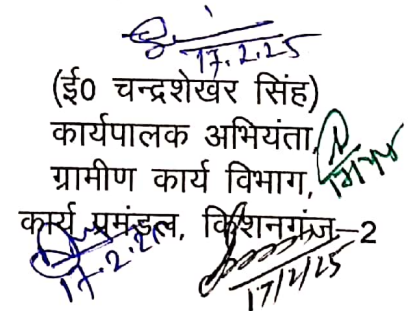 17.2.25
(ई0 चन्द्रशेखर सिंह)
कार्यपालक अभियंता,
ग्रामीण कार्य विभाग,
कार्य प्रमंडल, किशनगंज–2
17.2.25
17/2/25